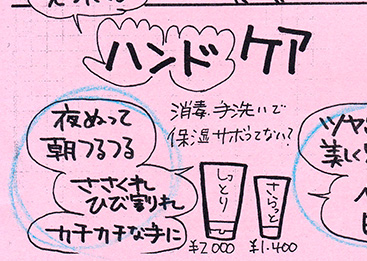 ハンドケア
夜ぬって
朝つるつる
消毒・手洗いで
保湿サボってない?
ささくれ
ひび割れ
カチカチな手に
しっとり
¥2000
さらっと
¥1.400
ツヤ
美しく